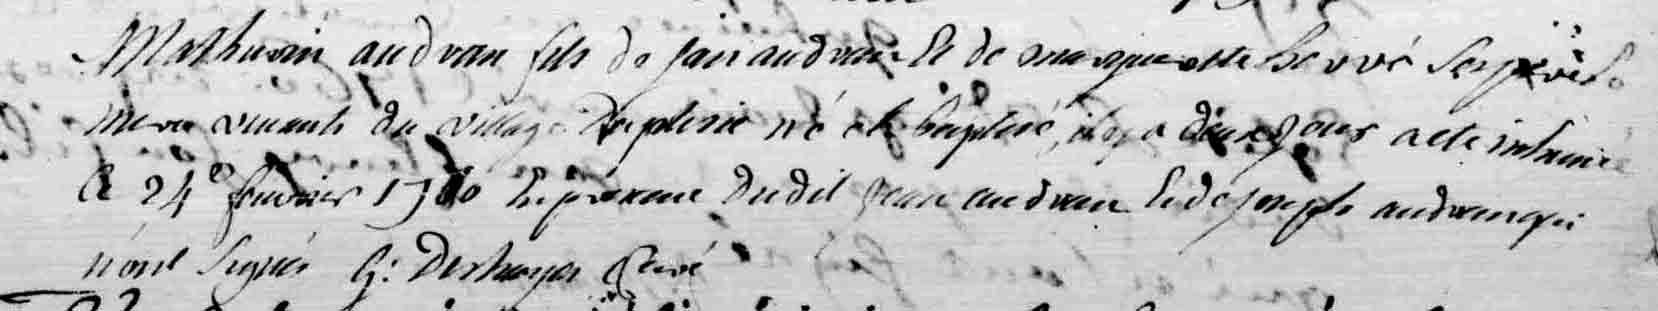 Mathurin audran fils de jan audran Et de margueritte hervé Ses pere Et
mere vivants du village né et baptisé, il y a deux jours a eté inhumé
Le 24e fevrier 1760 En presence dudit jean audran Et de joseph audran qui
n'ont signés G: Deshayes Curé